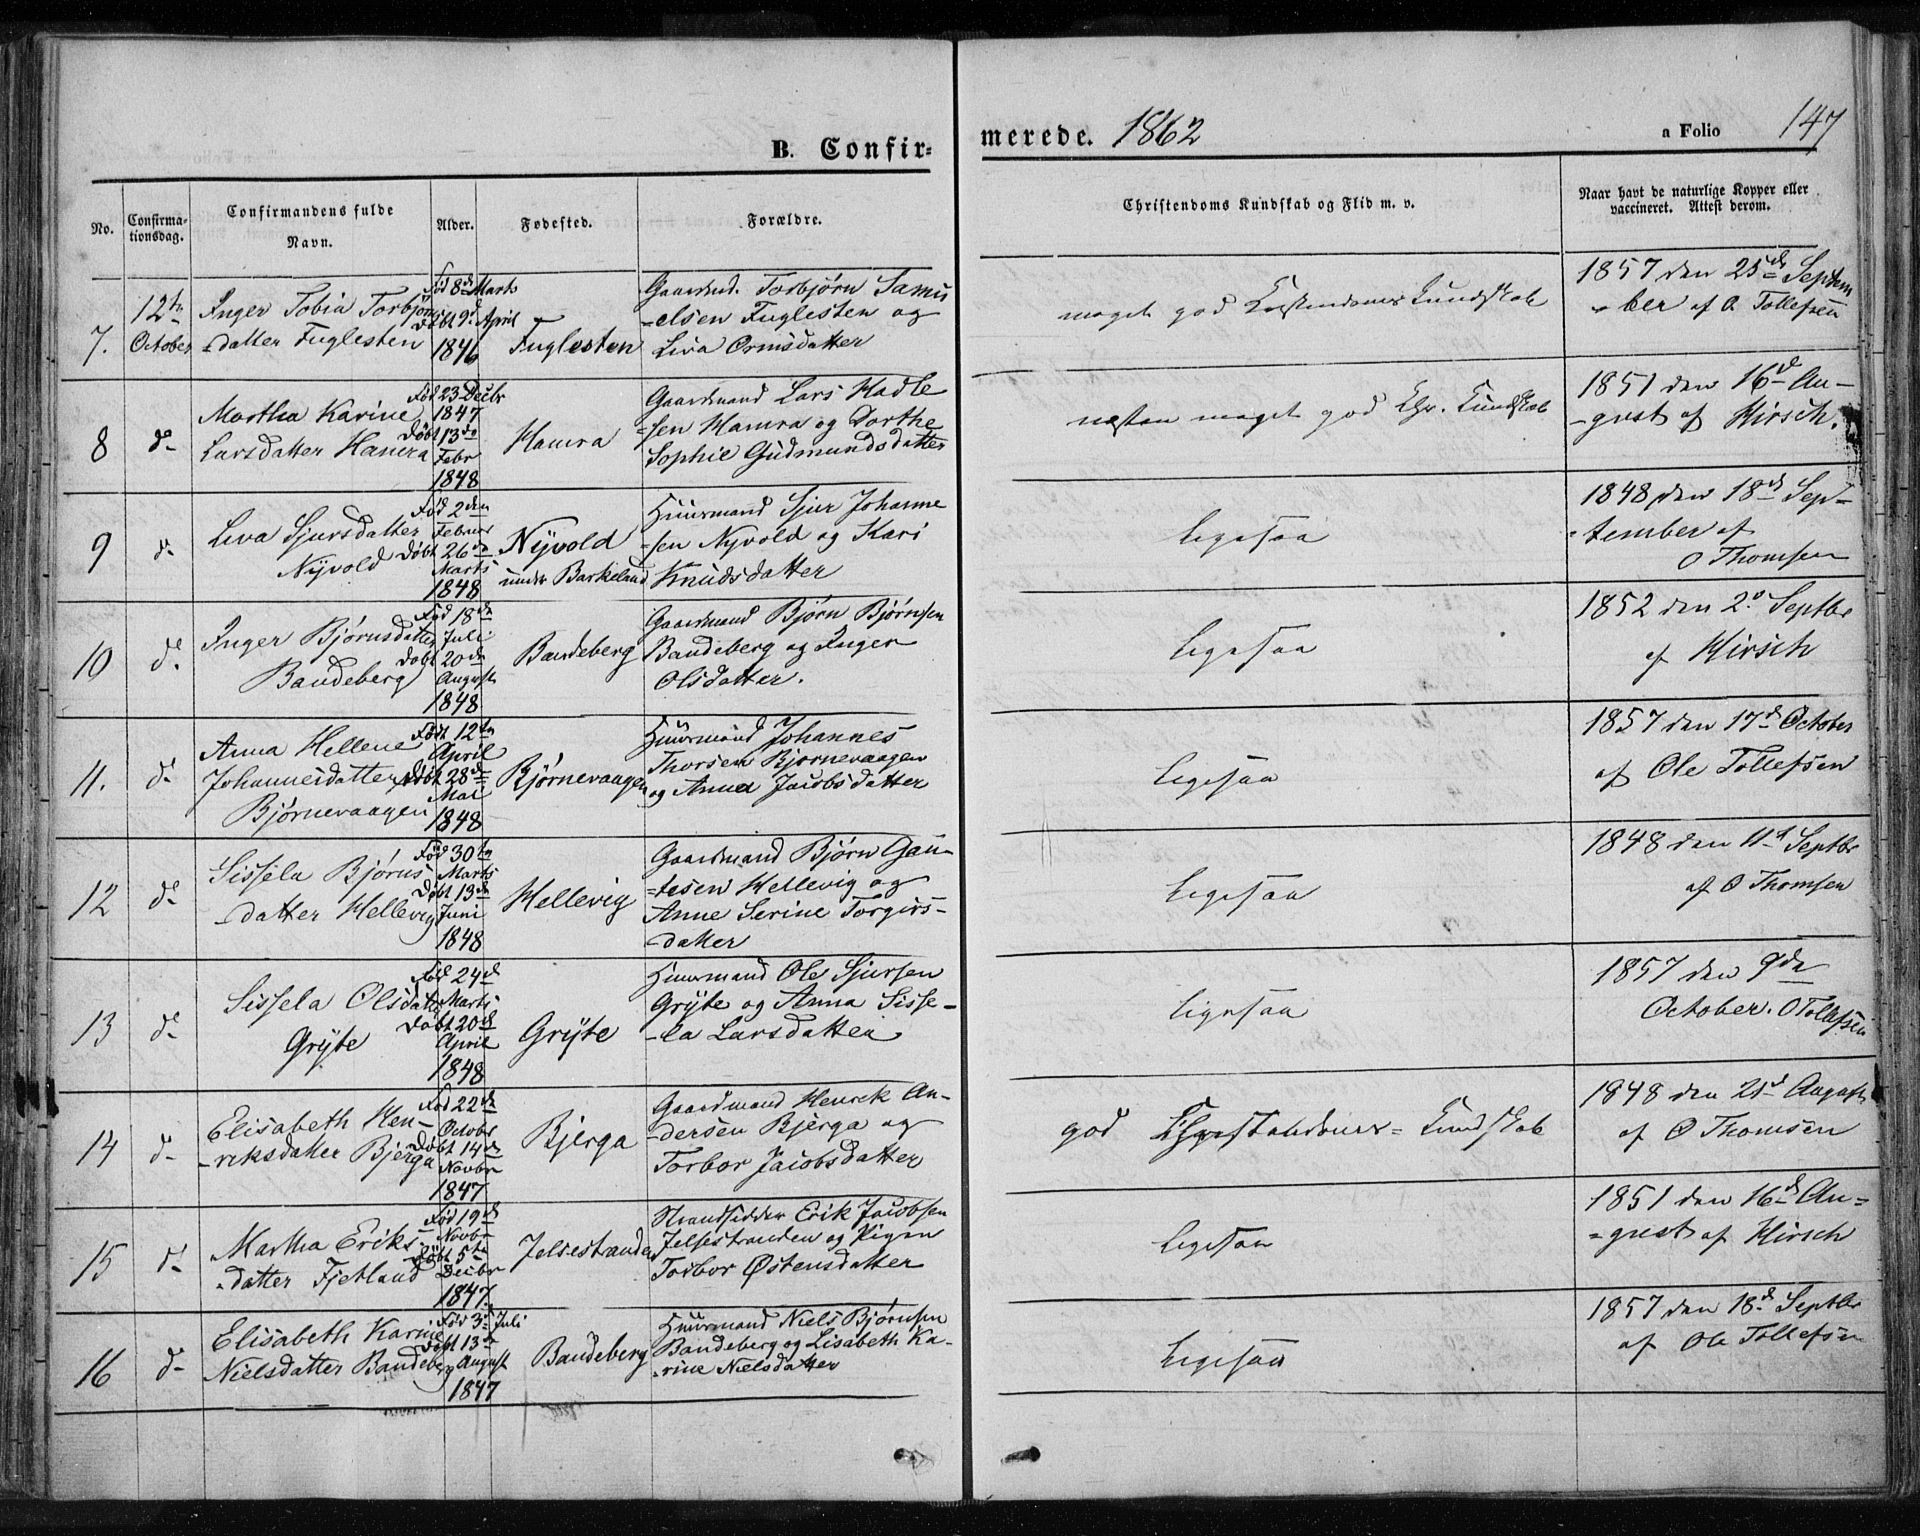 B. Confir-
merede. 1862
a Folio 147
No.
Confirma-
tionsdag.
Confirmandens fulde
Navn.
Alder.
Fødested.
Forældre.
Christendoms Kundskab og Flid m. v.
Naar havt de naturlige Kopper eller
vaccineret. Attest derom.
7.
12te
October
Inger Tobia Torbjørns
-datter Fuglesten
Fød 8de Marts
Døbt 9d April
1846
Fuglesten
Gaardmd. Torbjørn Samu
-elsen Fuglesten og
Liva Ormsdatter
meget god Christendoms Kundskab
1857 den 25de Septem
-ber af O Tollefsen
8
do
Martha Karine
Larsdatter Hamra
Fød 23 Decbr
1847
Døbt 13de
Febr
1848
Hamra
Gaardmand Lars Hadle
-sen Hamra og Dorthe
Sophie Gudmundsdatter
næsten meget god Chr. Kundskab
1851 den 16d Au-
-gust af Hirsch.
9
do
Liva Sjursdatter
Nyvold
Fød 2den
Februar
Døbt 26de
Marts
1848
Nyvold
under Barkeland
Huusmand Sjur Johanne
-sen Nyvold og Kari
Knudsdatter
Ligesaa
1848 den 18d Sep-
-tember af
O Thomsen
10
do
Inger Bjørnsdatter
Bandeberg
Fød 18de
Juli
Døbt 20de
August
1848
Bandeberg
Gaardmand Bjørn Bjørnsen
Bandeberg og Inger
Olsdatter.
Ligesaa
1852 den 2d Septbr
af Hirsch
11.
do
Anna Hellene
Johannesdatter
Bjørnevaagen
Fød 12te
April
Døbt 28de
Mai
1848
Bjørnevaagen
Huusmand Johannes
Thorsen Bjørnevaagen
og Anna Jacobsdatter
Ligesaa
1857 den 17d October
af Ole Tollefsen
12
do
Sissela Bjørns
-datter Hellevig
Fød 30te
Marts
Døbt 13de
Juni
1848
Hellevig
Gaardmand Bjørn Gau-
-tesen Hellevig og
Anne Serine Torgers-
-datter
Ligesaa
1848 den 11d Septbr
af O Thomsen
13
do
Sissela Olsdatter
Gryte
Fød 24d
Marts
Døbt 20de
April
1848
Gryte
Huusmand Ole Sjursen
Gryte og Anna Sisse-
-la Larsdatter
Ligesaa
1857 den 9de
October. O Tollefsen
14
do
Elisabeth Hen-
-riksdatter Bjerga
Fød 22de
Octobr
Døbt 14de
Novbr
1847
Bjerga
Gaardmand Henrik An-
-dersen Bjerga og
Torbor Jacobsdatter
god Christendoms- Kundskab
1848 den 21d August
af O Thomsen
15
do
Martha Eriks-
-datter Fjetland
Fød 19d
Novbr
Døbt 5te
Decbr
1847.
Jelsestranden
Strandsidder Erik Jacobsen
Jelsestranden og Pigen
Torbor Østensdatter
Ligesaa
1851 den 16d Au-
-gust af Hirsch
16
do
Elisabeth Karine
Nielsdatter Bandeberg
Fød 3d Juli
Døbt 13de
August
1847
Bandeberg
Huusmand Niels Bjørnsen
Bandeberg og Lisabeth Ka-
-rine Nielsdatter
Ligesaa
1857 den 18d Septbr
af Ole Tollefsen